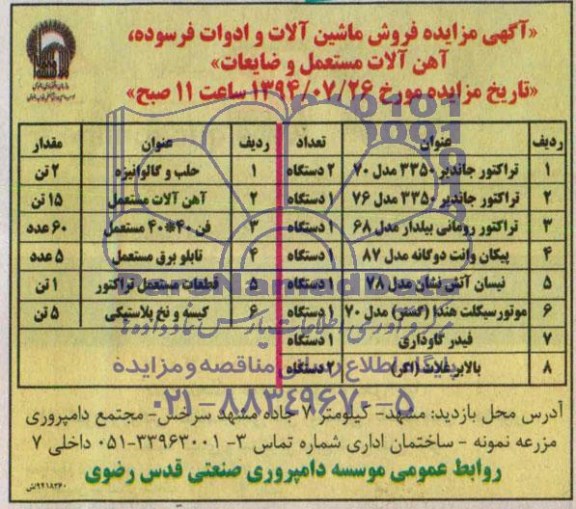 «آگهی مزایده فروش ماشین آلات و ادوات فرسوده،
آهن آلات مستعمل و ضایعات»
«تاریخ مزایده مورخ ۱۳۹۴/۰۷/۲۶ ساعت ۱۱ صبح»
ردیف عنوان تعداد ردیف عنوان مقدار
۱ تراکتور جاندیر ۳۳۵۰ مدل ۷۰ ۲ دستگاه ۱ حلب و گالوانیزه ۲ تن
۲ تراکتور جاندیر ۳۳۵۰ مدل ۷۶ ۱ دستگاه ۲ آهن آلات مستعمل ۱۵ تن
۳ تراکتور رومانی بیلدار مدل ۶۸ ۱ دستگاه ۳ فن ۴۰*۴۰ مستعمل ۶۰ عدد
۴ پیکان وانت دوگانه مدل ۸۷ ۱ دستگاه ۴ تابلو برق مستعمل ۵ عدد
۵ نیسان آتش نشان مدل ۷۸ ۱ دستگاه ۵ قطعات مستعمل تراکتور ۱ تن
۶ موتورسیکلت هندا (گستر) مدل ۷۰ ۱ دستگاه ۶ کیسه و نخ پلاستیکی ۵ تن
۷ فیدر گاوداری ۱ دستگاه
۸ بالابر غلات (اگر) ۲ دستگاه
ParsNamadData
پایگاه اطلاع رسانی مناقصه و مزایده
۰۲۱-۸۸۳۴۹۶۷۰-۵
آدرس محل بازدید: مشهد- کیلومتر ۷ جاده مشهد سرخس- مجتمع دامپروری
مزرعه نمونه - ساختمان اداری شماره تماس ۳- ۳۳۹۶۳۰۰۱-۰۵۱ داخلی ۷
روابط عمومی موسسه دامپروری صنعتی قدس رضوی